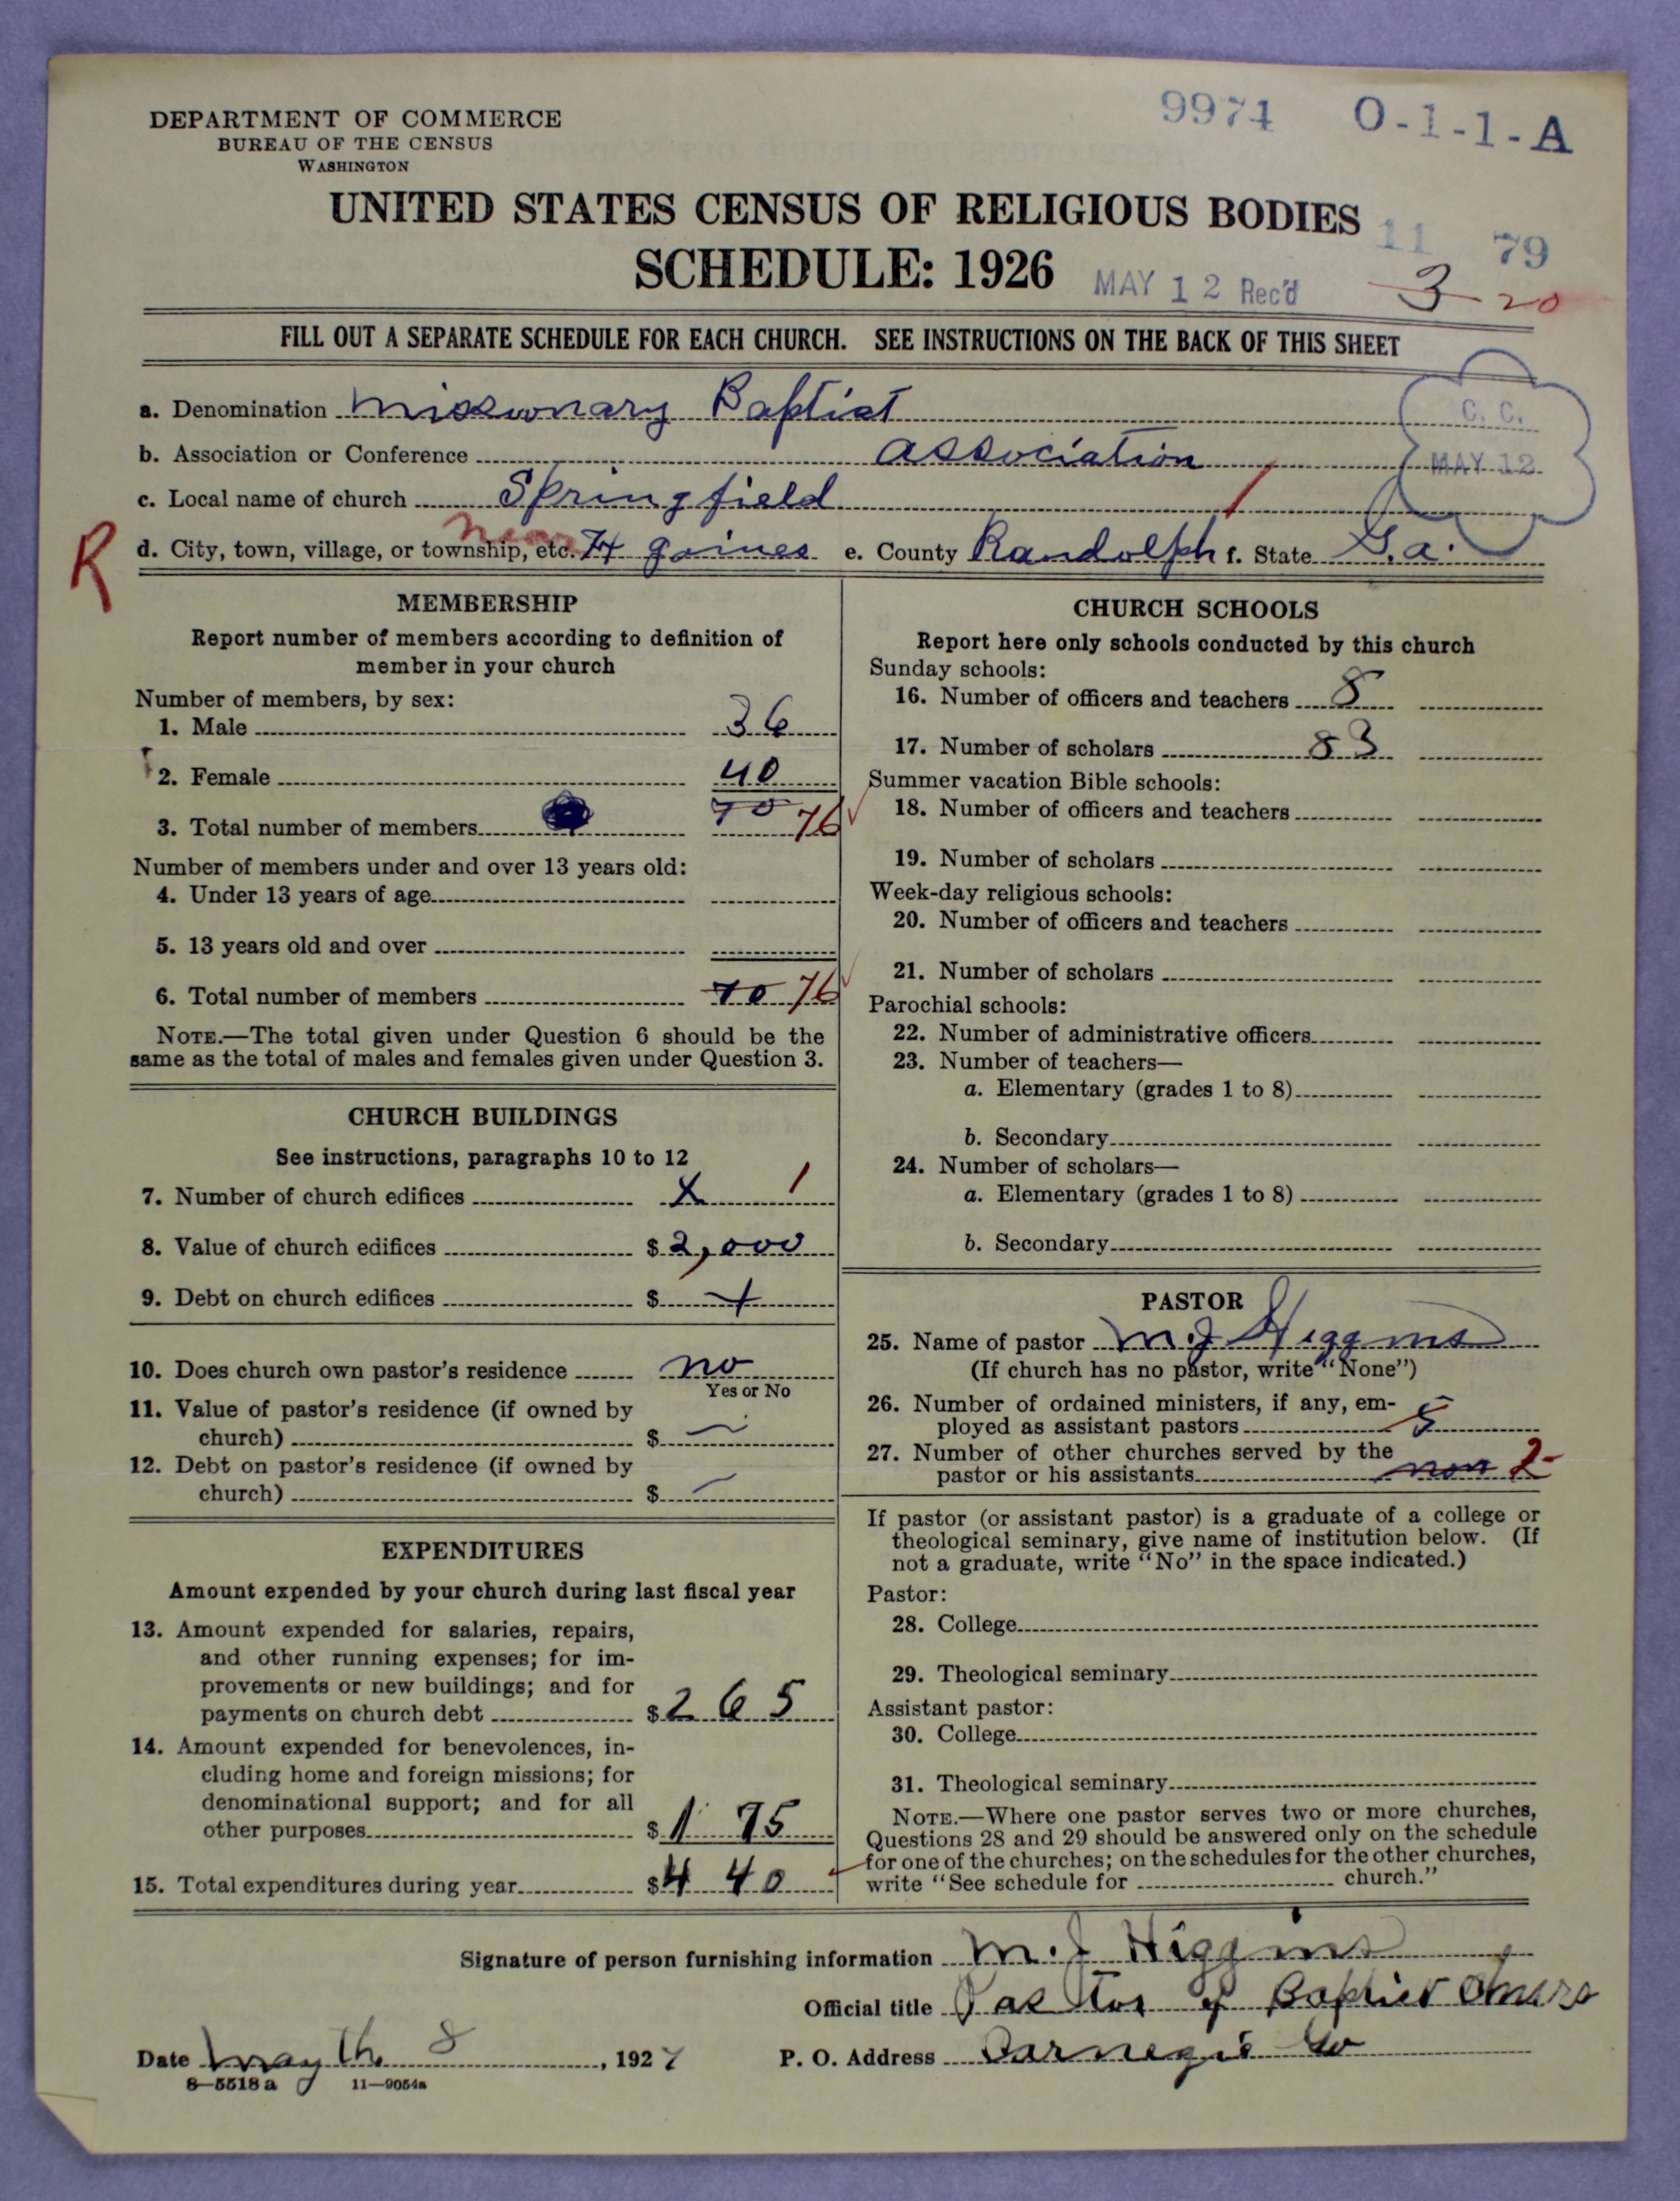 DEPARTMENT OF COMMERCE
BUREAU OF THE CENSUS
WASHINGTON
9974 O-1-1-A
UNITED STATES CENSUS OF RELIGIOUS BODIES
11 79
SCHEDULE: 1926
MAY 12 Rec'd
3-20
FILL OUT A SEPARATE SCHEDULE FOR EACH CHURCH. SEE INSTRUCTIONS ON THE BACK OF THIS SHEET
a. Denomination missionary Baptist
C. C.
b. Association or Conference association
MAY 12
c. Local name of church Springfield
near
R
d. City, town, village, or township, etc. Ft gaines e. County Randolph f. State Ga.
MEMBERSHIP
Report number of members according to definition of
member in your church
Number of members, by sex:
1. Male 36
2. Female 40
3. Total number of members 70 76
Number of members under and over 13 years old:
4. Under 13 years of age
5. 13 years old and over
6. Total number of members 70 76
NOTE.—The total given under Question 6 should be the
same as the total of males and females given under Question 3.
CHURCH BUILDINGS
See instructions, paragraphs 10 to 12
7. Number of church edifices X 1
8. Value of church edifices $ 2,000
9. Debt on church edifices $
10. Does church own pastor's residence no
Yes or No
11. Value of pastor's residence (if owned by
church) $ —
12. Debt on pastor's residence (if owned by
church) $ —
EXPENDITURES
Amount expended by your church during last fiscal year
13. Amount expended for salaries, repairs,
and other running expenses; for im-
provements or new buildings; and for
payments on church debt $ 265
14. Amount expended for benevolences, in-
cluding home and foreign missions; for
denominational support; and for all
other purposes $ 175
15. Total expenditures during year $ 440
CHURCH SCHOOLS
Report here only schools conducted by this church
Sunday schools:
16. Number of officers and teachers 8
17. Number of scholars 83
Summer vacation Bible schools:
18. Number of officers and teachers
19. Number of scholars
Week-day religious schools:
20. Number of officers and teachers
21. Number of scholars
Parochial schools:
22. Number of administrative officers
23. Number of teachers—
a. Elementary (grades 1 to 8)
b. Secondary
24. Number of scholars—
a. Elementary (grades 1 to 8)
b. Secondary
PASTOR
25. Name of pastor M. J Higgins
(If church has no pastor, write "None")
26. Number of ordained ministers, if any, em-
ployed as assistant pastors 5
27. Number of other churches served by the
pastor or his assistants non 2
If pastor (or assistant pastor) is a graduate of a college or
theological seminary, give name of institution below. (If
not a graduate, write "No" in the space indicated.)
Pastor:
28. College
29. Theological seminary
Assistant pastor:
30. College
31. Theological seminary
NOTE.—Where one pastor serves two or more churches,
Questions 28 and 29 should be answered only on the schedule
for one of the churches; on the schedules for the other churches,
write "See schedule for church."
Signature of person furnishing information M. J Higgins
Official title Pastor of Baptist
Date May th. 8, 1927
P. O. Address Carnegie Ga
8—5518 a 11—9054a